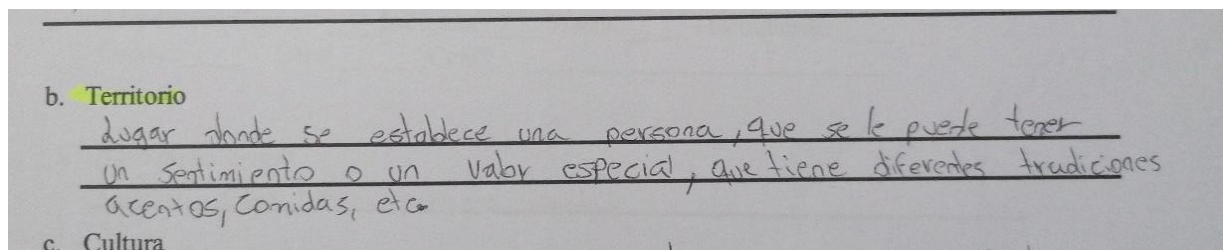 b. Territorio
Lugar donde se establece una persona, que se le puede tener
un sentimiento o un valor especial, que tiene diferentes tradiciones
acentos, comidas, etc.
c. Cultura